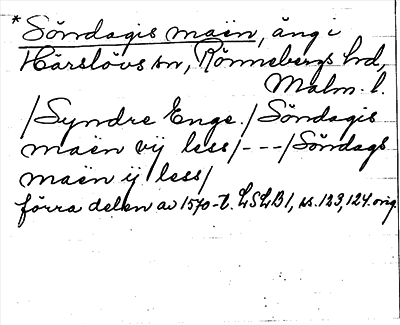 * Söndagis maën, äng i
Härslövs sn, Rönnebergs hd,
Malm. l.
/Syndre Enge./Söndagis
maën vij less/---/Söndags
maën ij less/
förra delen av 1570-t. LSLB1, ss. 123, 124. orig.